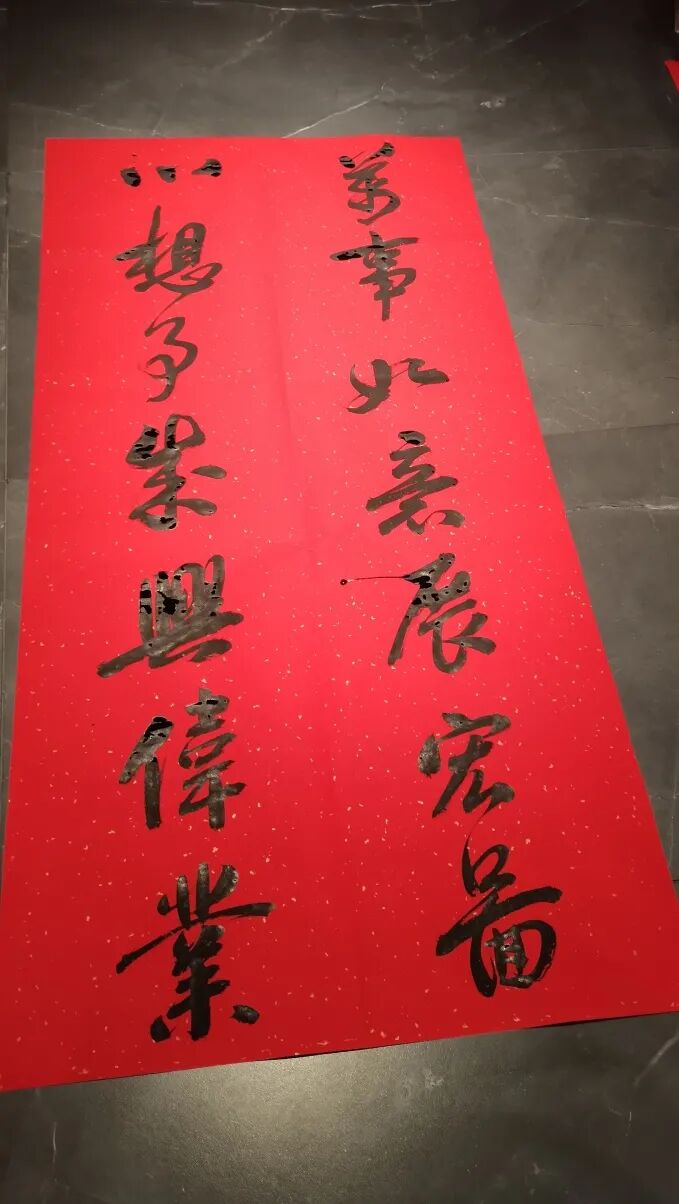 萬事如意展宏圖
心想事成興偉業